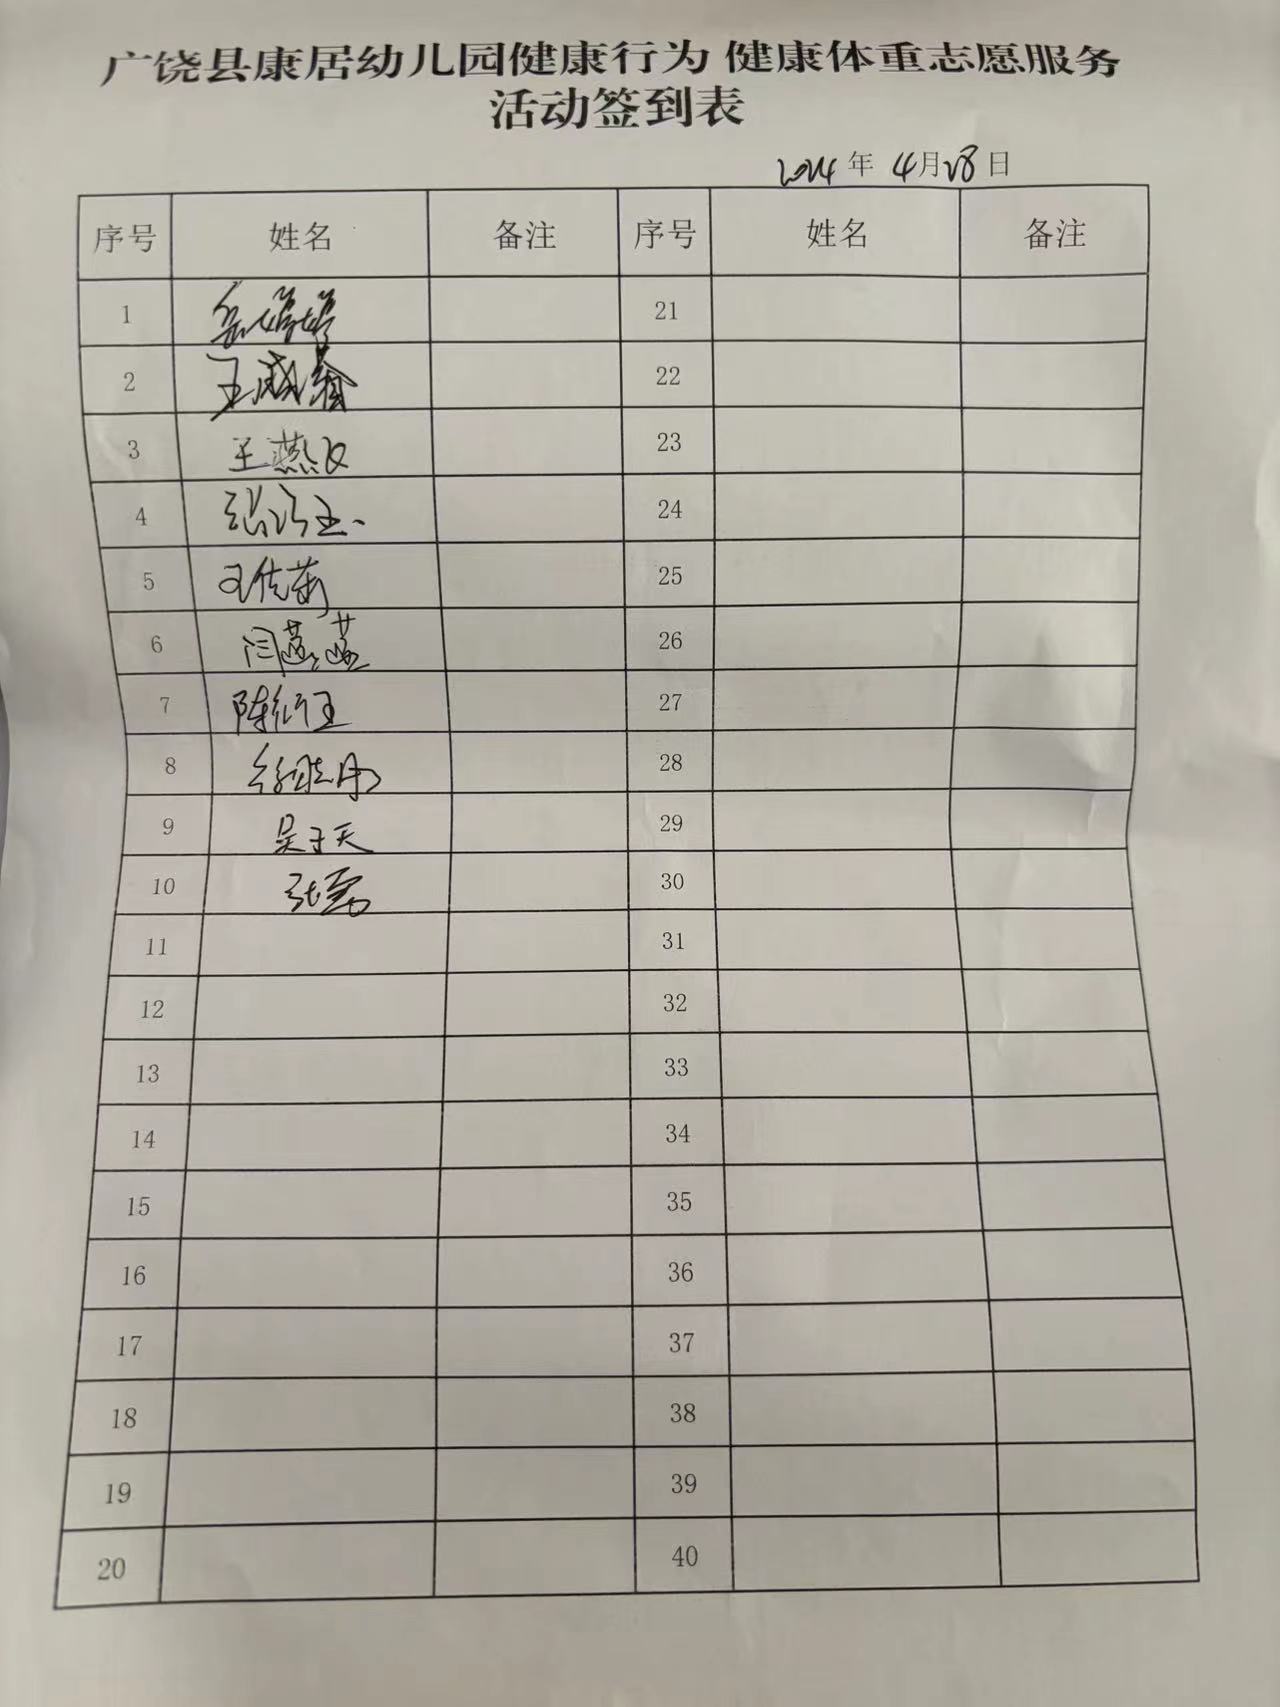 广饶县康居幼儿园健康行为 健康体重志愿服务
活动签到表
2024年 4月28日
序号 姓名 备注 序号 姓名 备注
1 岳婷婷 21
2 王 22
3 王燕文 23
4 张 玉 24
5 王佳莉 25
6 闫 26
7 陈 玉 27
8 徐晓丹 28
9 吴于天 29
10 张 30
11 31
12 32
13 33
14 34
15 35
16 36
17 37
18 38
19 39
20 40